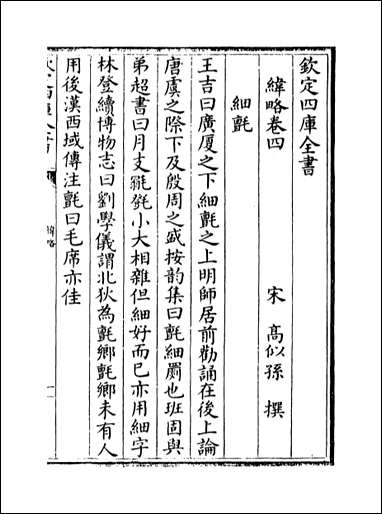 欽定四庫全書
緯略卷四
宋 高似孫 撰
細氈
王吉曰廣厦之下細氈之上明師居前勸誦在後上論
唐虞之際下及殷周之盛按韵集曰氈細罽也班固與
弟超書曰月支毾㲪小大相雜但細好而已亦用細字
林登續博物志曰劉學儀謂北狄為氈鄉氈鄉未有人
用後漢西域傳注氈曰毛席亦佳
緯略